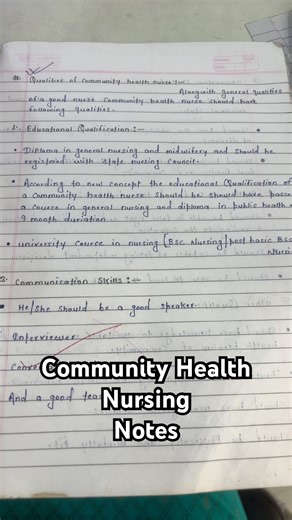 Qualities of community health nurse :-
Alongwith general qualities
of a good nurse community health nurse should have
following qualities.
1. Educational Qualification :-
• Diploma in general nursing and midwifery and should be
registered with state nursing council.
• According to new concept the educational Qualification of
a Community health nurse should be should have passe
a course in general nursing and diploma in public health
9 month durration
• university course in nursing (BSC Nursing/post basic Bsc
Nursi
2. Communication Skins :-
• He/She should be a good speaker
Interviewer
And a good
Community Health
Nursing
Notes